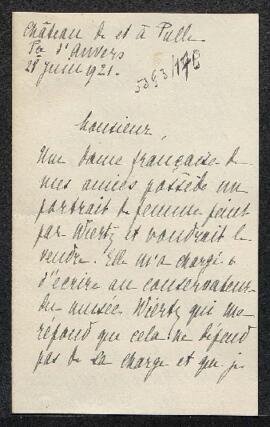 Château de et à Pulle
Pce d'Anvers
28 Juin 1921.
5393/178
Monsieur,
Une dame française de
mes amies possède un
portrait de femme peint
par Wiertz et voudrait le
vendre. Elle m'a chargé
d'écrire au conservateur
du musée Wiertz qui me
répond que cela ne dépend
pas de sa charge et que je